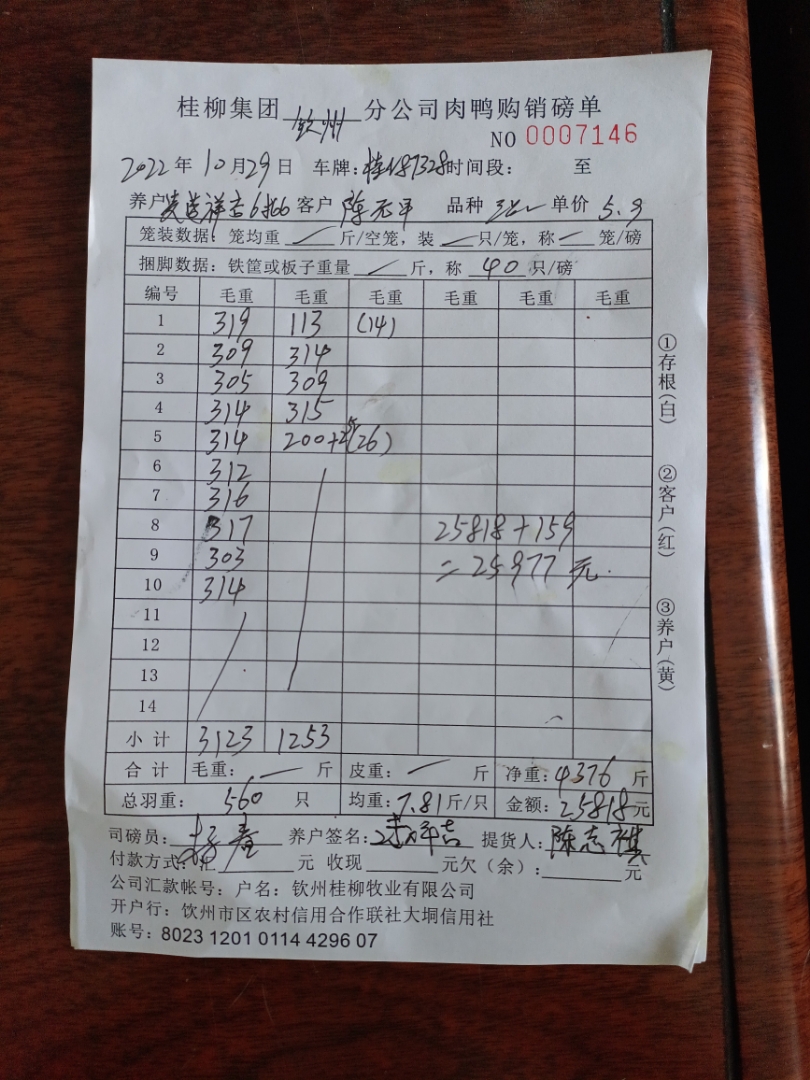 桂柳集团 钦州 分公司肉鸭购销磅单
NO 0007146
2022 年 10 月 29 日 车牌: 桂N87328 时间段: 至
养户 祥吉 客户 陈元平 品种 单价 5.9
笼装数据: 笼均重 / 斤/空笼, 装 / 只/笼, 称 / 笼/磅
捆脚数据: 铁筐或板子重量 / 斤, 称 40 只/磅
编号 毛重 毛重 毛重 毛重 毛重 毛重
1 319 113 (14)
2 309 314
3 305 309
4 314 315
5 314 200+2 (26)
6 312
7 316
8 317 25818+159
9 303 =25977元.
10 314
11
12
13
14
小计 3123 1253
合计 毛重: / 斤 皮重: / 斤 净重: 4376 斤
总羽重: 560 只 均重: 7.81 斤/只 金额: 25818 元
司磅员: 养户签名: 祥吉 提货人: 陈志
付款方式: 汇 元 收现 元欠(余): 元
公司汇款帐号: 户名: 钦州桂柳牧业有限公司
开户行: 钦州市区农村信用合作联社大垌信用社
账号: 8023 1201 0114 4296 07
①存根(白)
②客户(红)
③养户(黄)